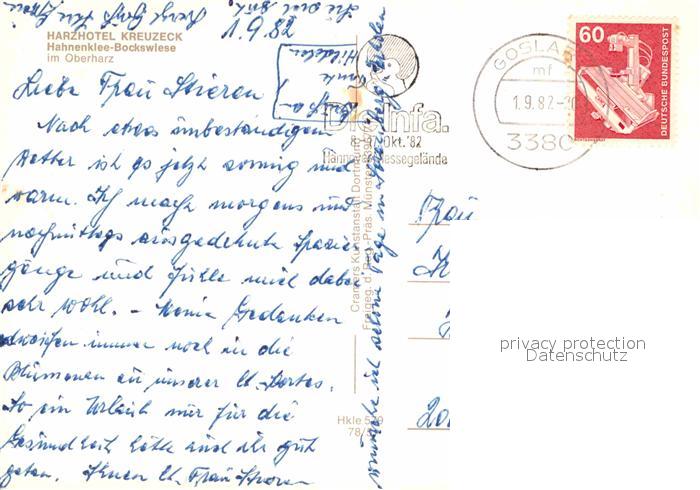 1.9.82
HARZHOTEL KREUZECK
Hahnenklee-Bockswiese
im Oberharz
Liebe Frau Stieren
Nach etwas unbeständigem
Wetter ist es jetzt sonnig und
warm. Ich mache morgens und
nachmittags ausgedehnte Spazier
gänge und fühle mich dabei
sehr wohl. - Meine Gedanken
schweifen immer noch in die
zu unserer lb.
So ein Urlaub nur für die
Gesundheit hätte auch ihr gut
getan. Ihnen lb. Frau Stieren
wünsche ich schöne Tage
Cramers Kunstanstalt Dortmund
Freigeg. d. Reg.-Präs. Münster
Hkle 5
78/5
infa.
Okt. '82
Hannover Messegelände
GOSLAR
mf
1.9.82-20
3380
60
DEUTSCHE BUNDESPOST
Frau
privacy protection
Datenschutz